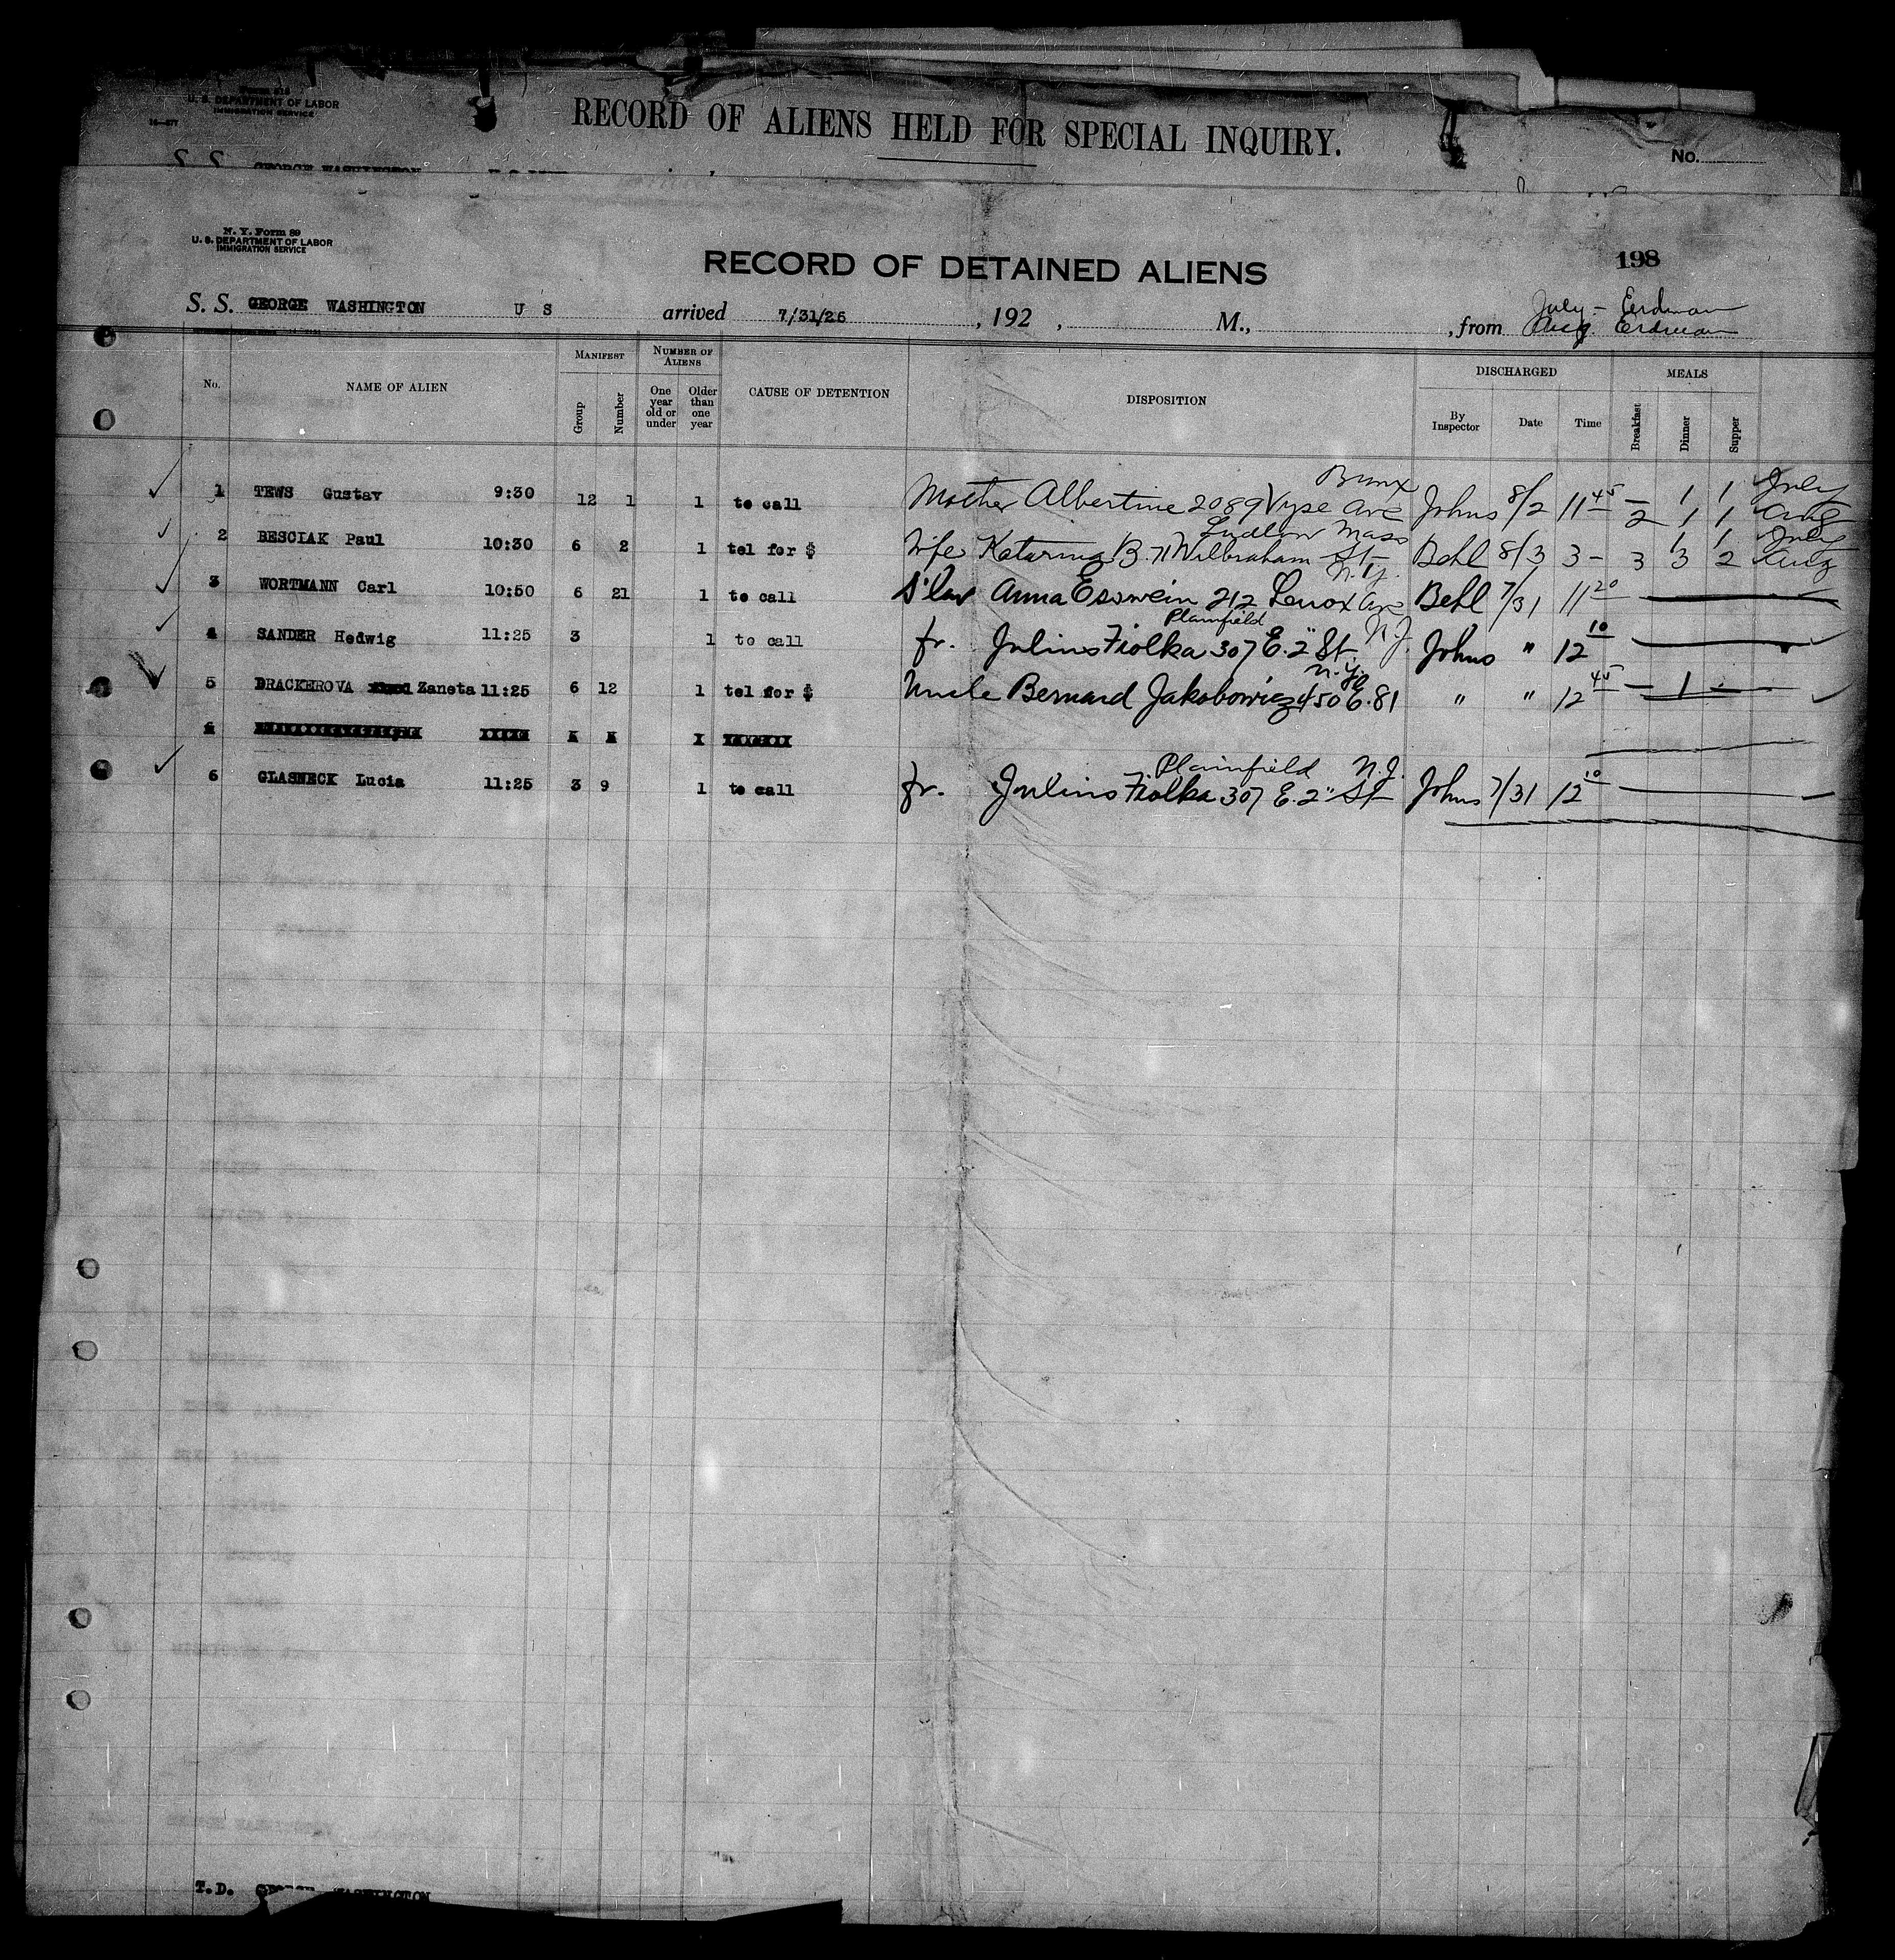 Form 616
U. S. DEPARTMENT OF LABOR
IMMIGRATION SERVICE
RECORD OF ALIENS HELD FOR SPECIAL INQUIRY.
No.
S. S. GEORGE WASHINGTON
N. Y. Form 89
U. S. DEPARTMENT OF LABOR
IMMIGRATION SERVICE
RECORD OF DETAINED ALIENS
198
July - Erdman
S. S. GEORGE WASHINGTON U S arrived 7/31/26, 192 , M., , from Aug. Erdman
No. NAME OF ALIEN MANIFEST Group Number NUMBER OF ALIENS One year old or under Older than one year CAUSE OF DETENTION DISPOSITION DISCHARGED By Inspector Date Time MEALS Breakfast Dinner Supper
Bronx
1 TEWS Gustav 9:30 12 1 1 to call Mother Albertine 2089 Vyse Ave Johns 8/2 11 45 — 1 1 July
2 1 1 Aug
Ludlow Mass
2 BESCIAK Paul 10:30 6 2 1 tel for $ Wife Katarina B. 71 Wilbraham St Behl 8/3 3 - 1 1 July
3 3 2 Aug
N.Y.
3 WORTMANN Carl 10:50 6 21 1 to call s'law Anna Esswein 212 Lenox Ave Behl 7/31 11 20
Plainfield N.J.
4 SANDER Hedwig 11:25 3 1 to call fr. Julius Fiolka 307 E. 2" St. Johns " 12 10
N.Y.
5 DRACKEROVA Zaneta 11:25 6 12 1 tel for $ Uncle Bernard Jakobowicz 450 E. 81 " " 12 45 — 1 -
Plainfield N.J.
6 GLASNECK Lucia 11:25 3 9 1 to call fr. Julius Fiolka 307 E. 2" St Johns 7/31 12 10
T.D. GEORGE WASHINGTON